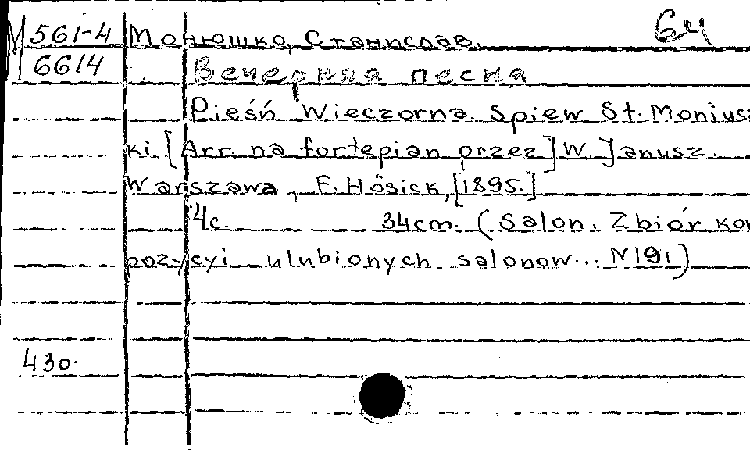 М 561-4 Монюшко, Станислав. 64
6614 Вечерняя песня
Pieśń Wieczorna. Spiew St. Moniusz
ki. [Arr. na fortepian przez] W. Janusz.
Warszawa, F. Hösick, [1895.]
4c. 34cm. (Salon. Zbiór kom
pozycyi ulubionych salonow... N 191)
430.